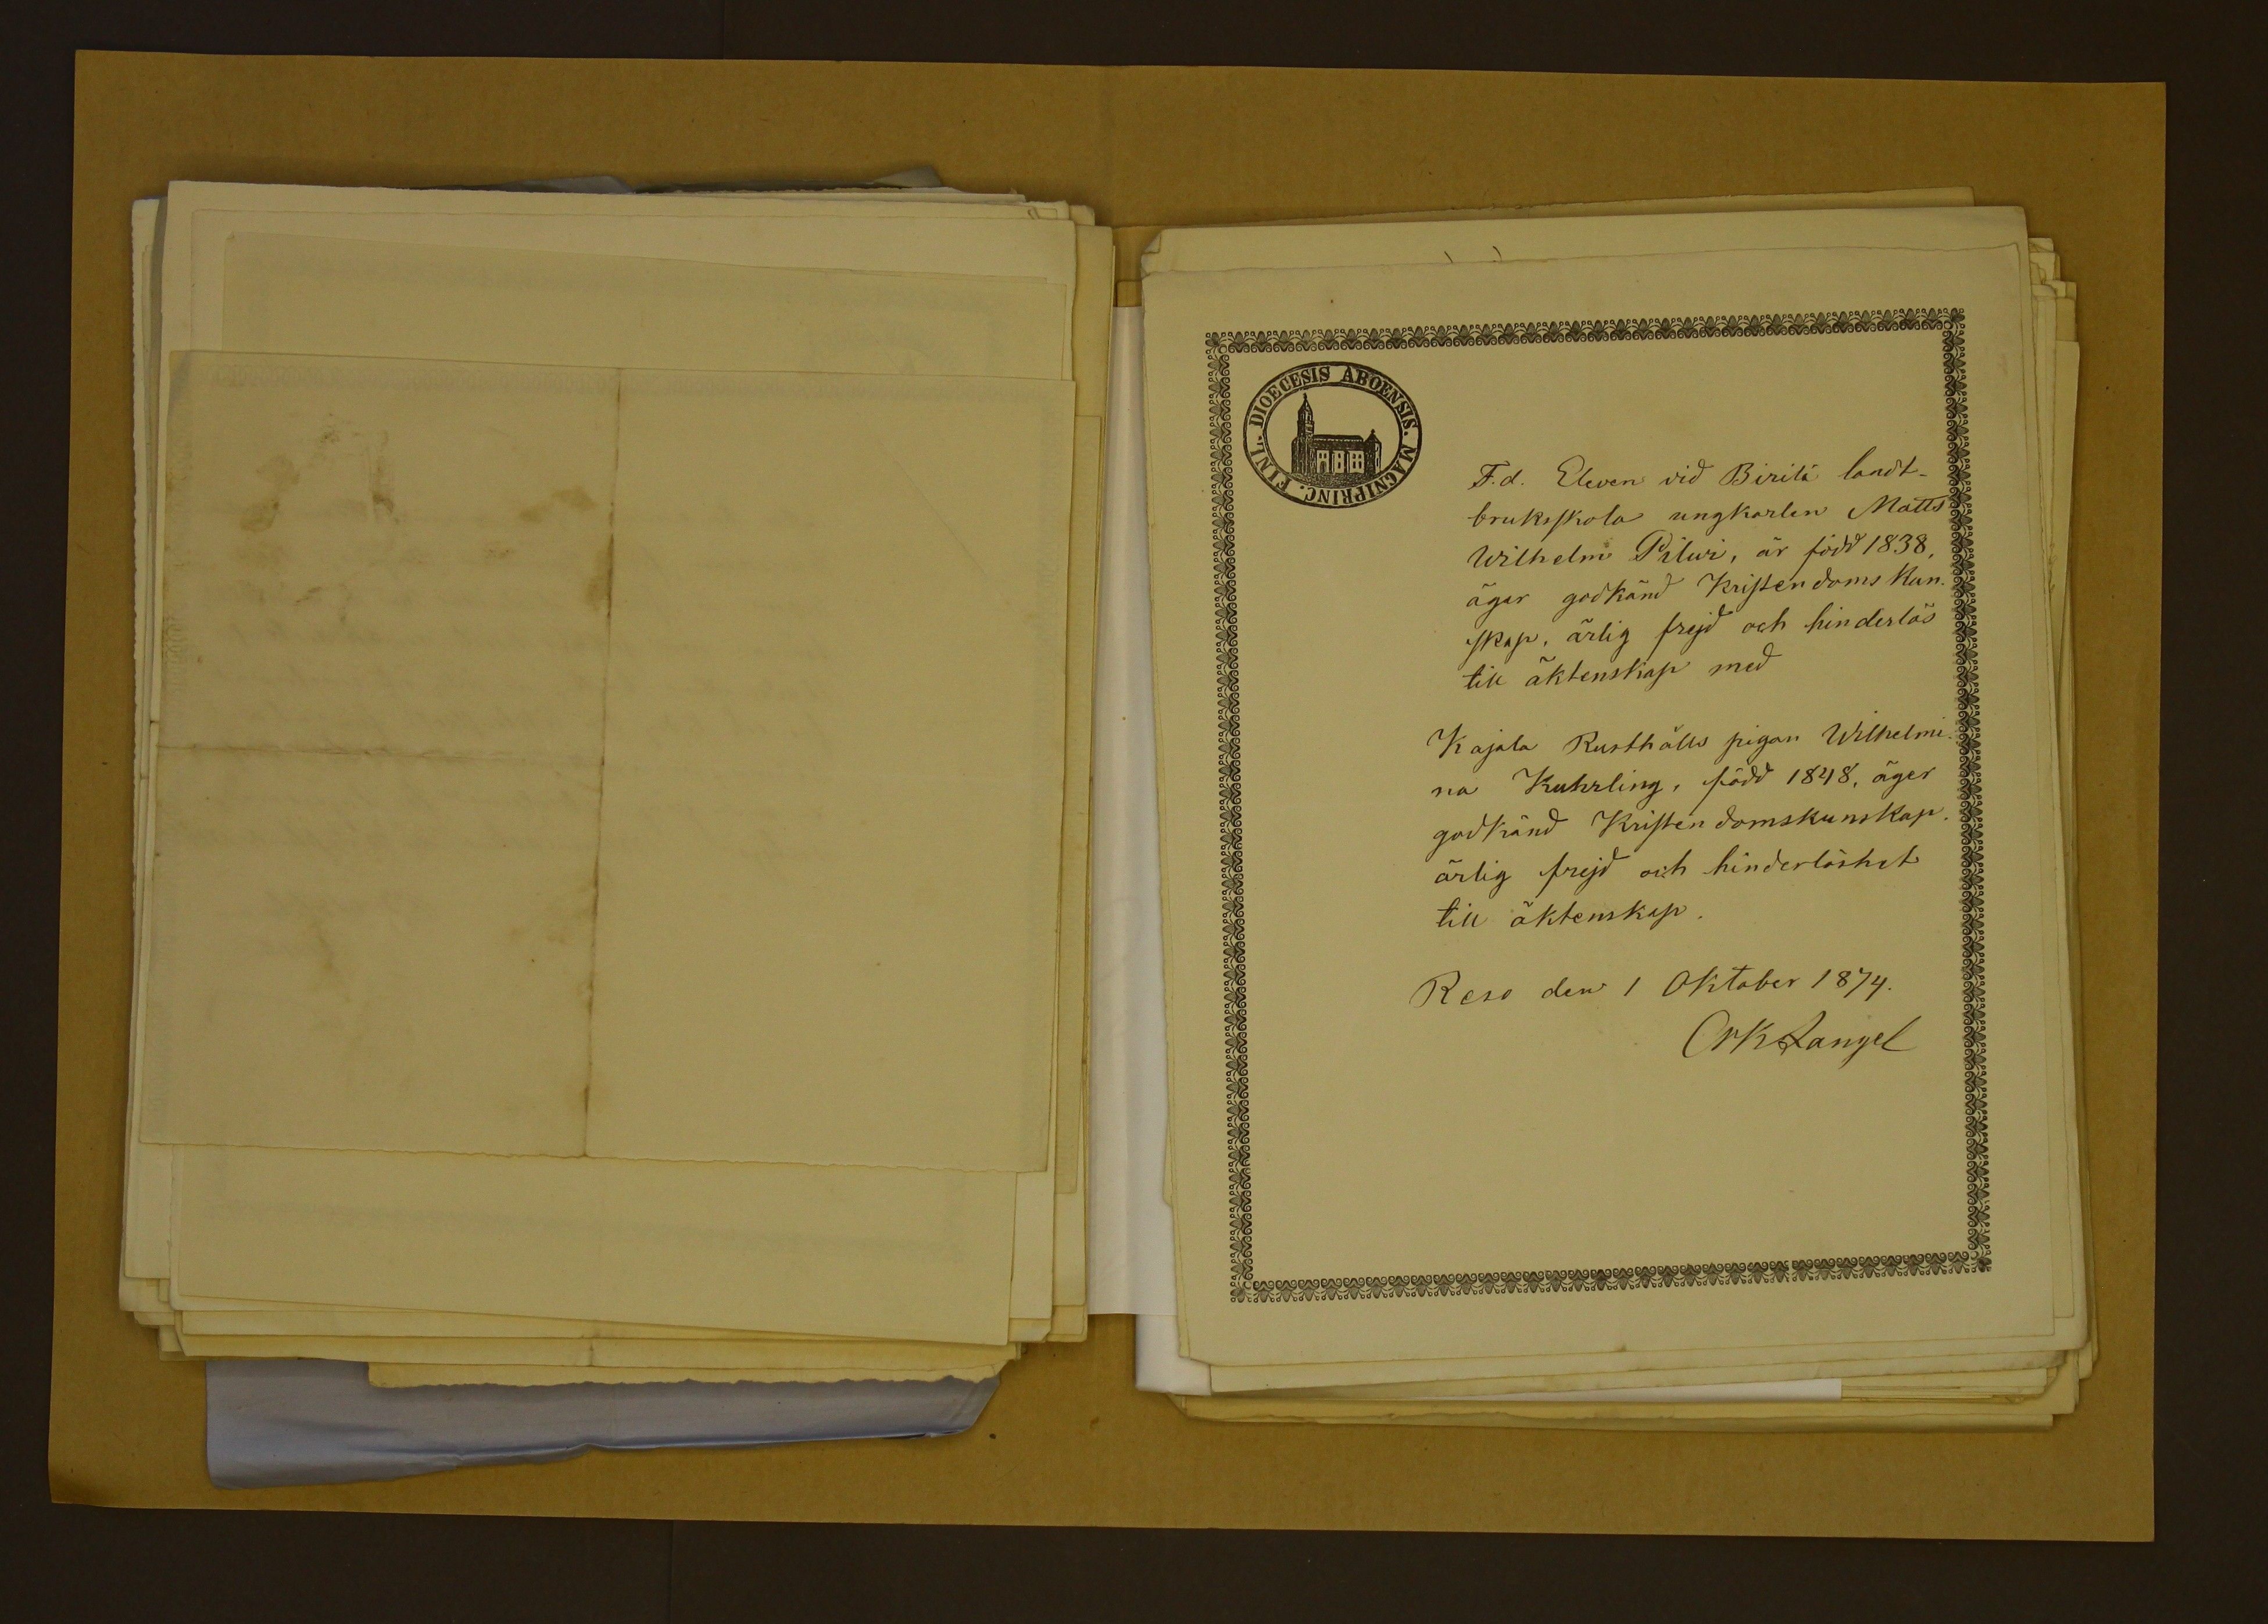 DIOECESIS ABOENSIS. MAGNIPRINC. FINL.
F.d. Eleven vid Birilä landt-
bruksskola ungkarlen Matts
Wilhelm Pilwi, är född 1838,
äger godkänd Kristendoms kun-
skap, ärlig frejd och hinderlös
till äktenskap med
Kajala Rusthålls pigan Wilhelmi-
na Kuhrling, född 1848, äger
godkänd Kristendomskunskap.
ärlig frejd och hinderlöshet
till äktenskap.
Reso den 1 Oktober 1874.
Zangel